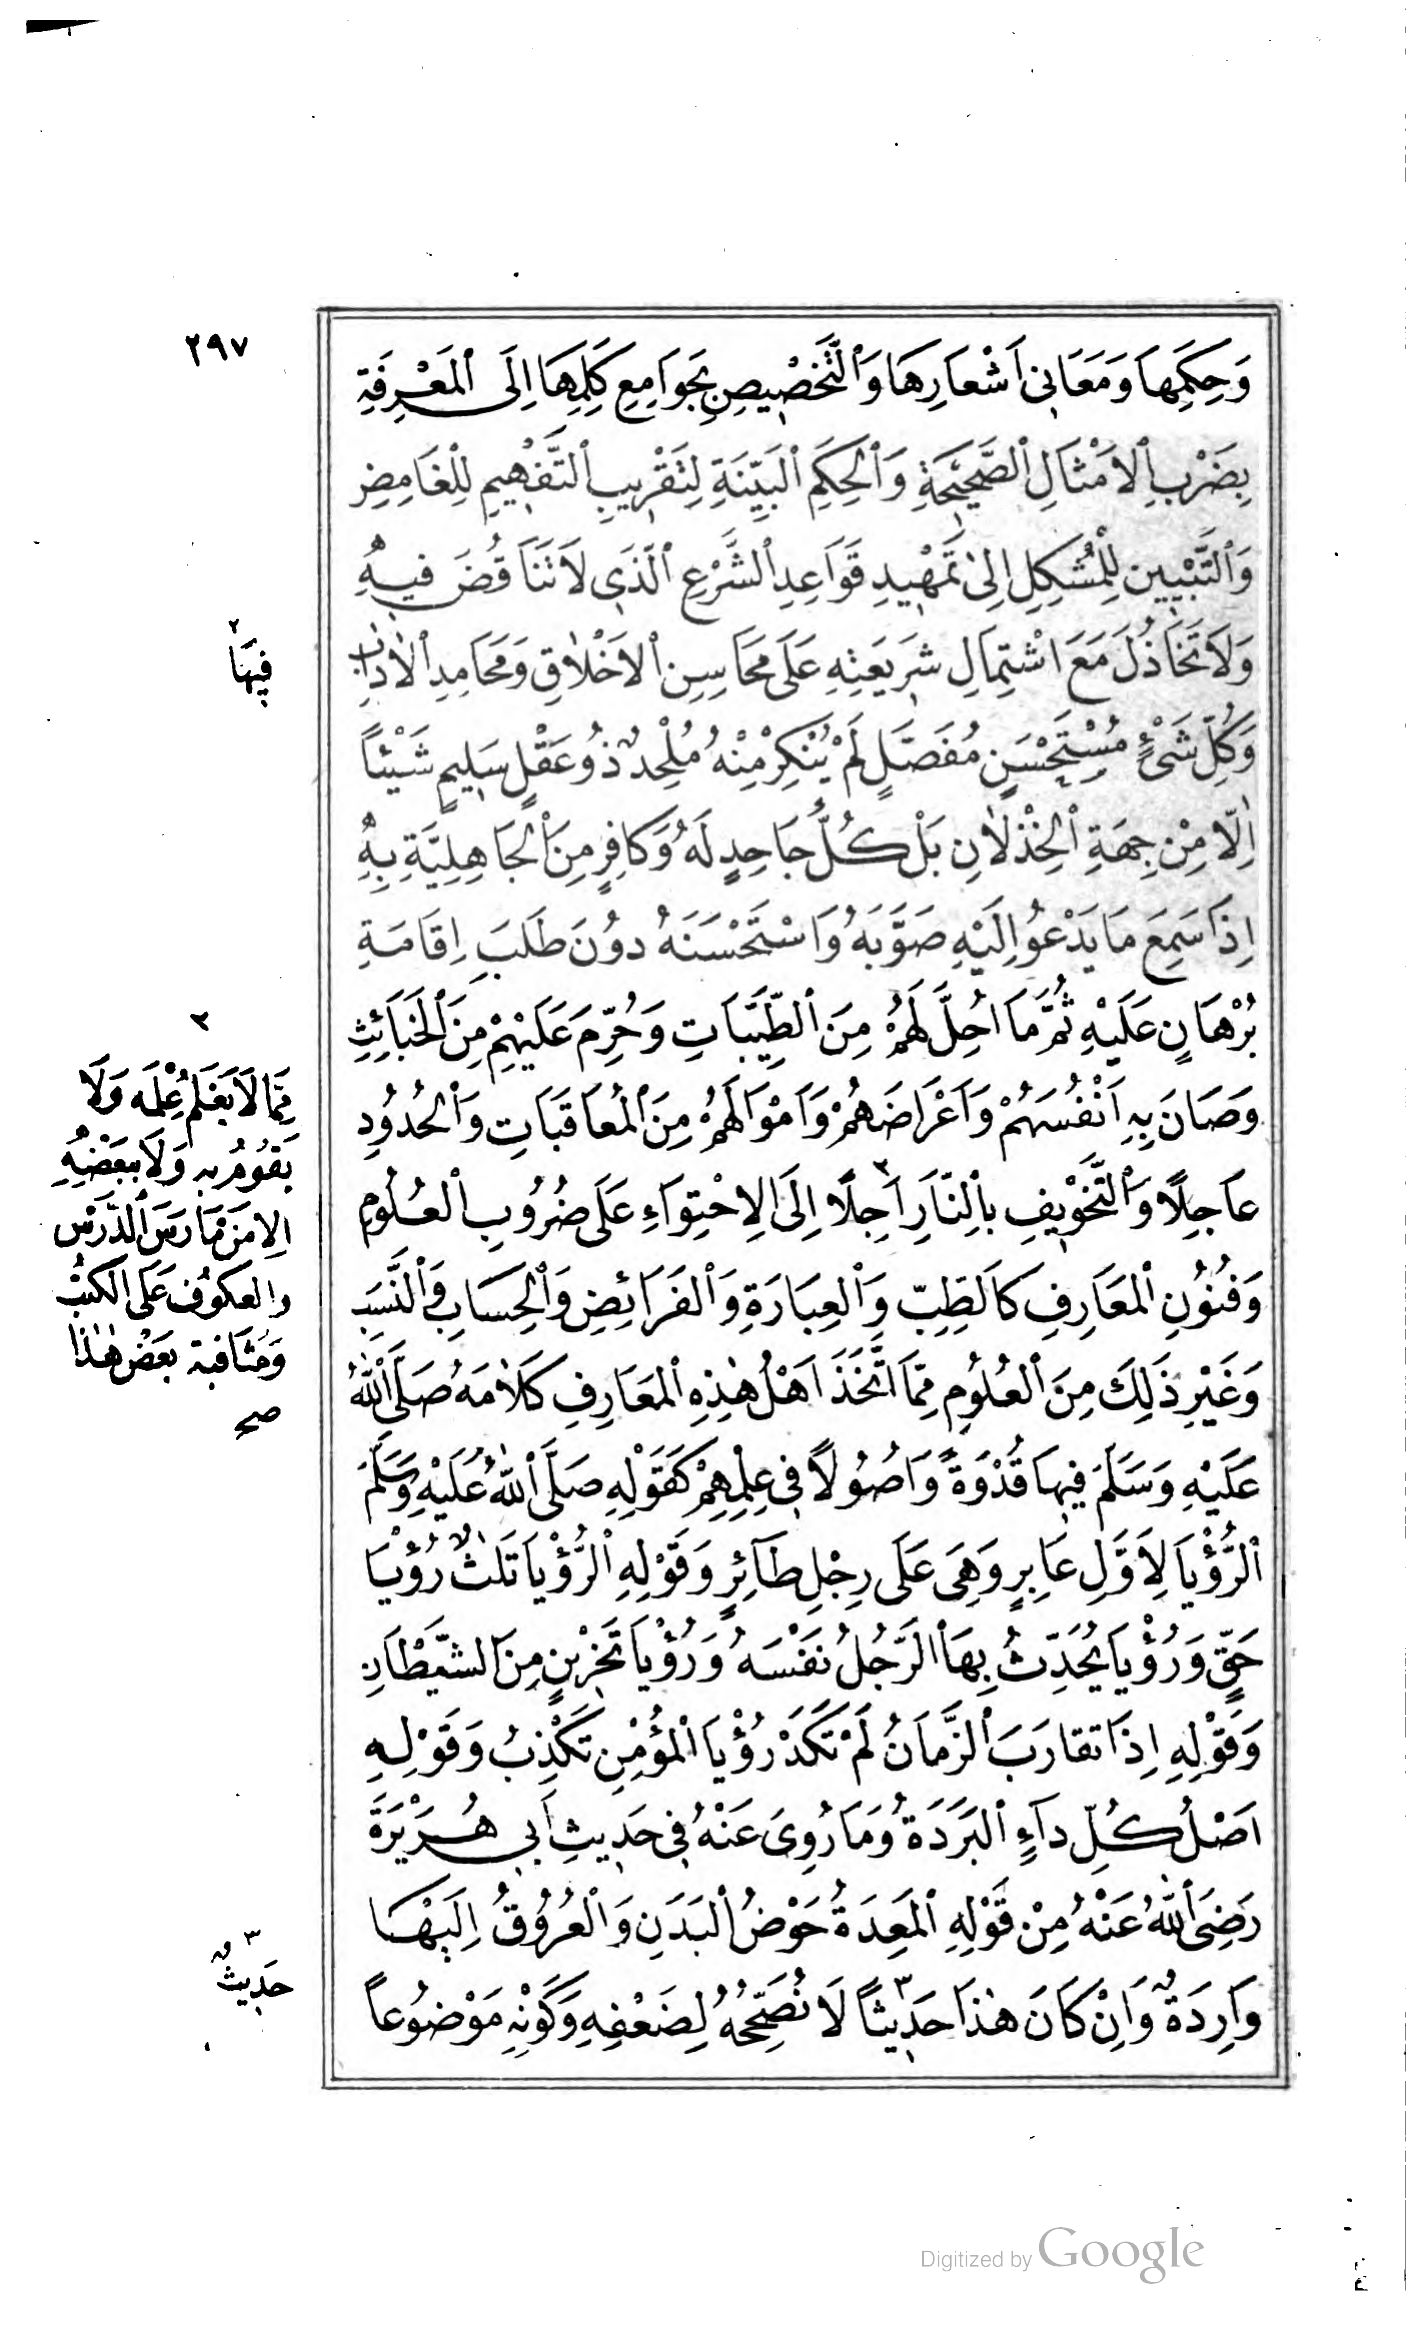 ٢٩٧
وَحِكَمِهَا وَمَعَانِى اَشْعَارِهَا وَالتَّخْصِيصِ بِجَوَامِعِ كَلِمِهَا اِلَى الْمَعْرِفَةِ
بِضَرْبِ الْاَمْثَالِ الصَّحِيحَةِ وَالْحِكَمِ الْبَيِّنَةِ لِتَقْرِيبِ التَّفْهِيمِ لِلْغَامِضِ
وَالتَّبْيِينِ لِلْمُشْكِلِ اِلىٰ تَمْهِيدِ قَوَاعِدِ الشَّرْعِ الَّذِى لَا تَنَاقُضَ فِيهِ
وَلَا تَخَاذُلَ مَعَ اشْتِمَالِ شَرِيعَتِهِ عَلَى مَحَاسِنِ الْاَخْلَاقِ وَمَحَامِدِ الْاٰدَابِ
وَكُلِّ شَىْءٍ مُسْتَحْسَنٍ مُفَصَّلٍ لَمْ يُنْكِرْ مِنْهُ مُلْحِدٌ ذُو عَقْلٍ سَلِيمٍ شَيْئاً
اِلَّا مِنْ جِهَةِ الْخِذْلَانِ بَلْ كُلُّ جَاحِدٍ لَهُ وَكَافِرٍ مِنَ الْجَاهِلِيَّةِ بِهِ
اِذَا سَمِعَ مَا يَدْعُو اِلَيْهِ صَوَّبَهُ وَاسْتَحْسَنَهُ دُونَ طَلَبِ اِقَامَةِ
بُرْهَانٍ عَلَيْهِ ثُمَّ مَا اُحِلَّ لَهُمْ مِنَ الطَّيِّبَاتِ وَحُرِّمَ عَلَيْهِمْ مِنَ الْخَبَائِثِ
وَصَانَ بِهِ اَنْفُسَهُمْ وَاَعْرَاضَهُمْ وَاَمْوَالَهُمْ مِنَ الْمُعَاقَبَاتِ وَالْحُدُودِ
عَاجِلًا وَالتَّخْوِيفِ بِالنَّارِ اٰجِلًا ٢ اِلَى الِاحْتِوَاءِ عَلَى ضُرُوبِ الْعُلُومِ
وَفُنُونِ الْمَعَارِفِ كَالطِّبِّ وَالْعِبَارَةِ وَالْفَرَائِضِ وَالْحِسَابِ وَالنَّسَبِ
وَغَيْرِ ذَلِكَ مِنَ الْعُلُومِ مِمَّا اتَّخَذَ اَهْلُ هٰذِهِ الْمَعَارِفِ كَلَامَهُ صَلَّى اللّٰهُ
عَلَيْهِ وَسَلَّمَ فِيهَا قُدْوَةً وَاُصُولًا فِى عِلْمِهِمْ كَقَوْلِهِ صَلَّى اللّٰهُ عَلَيْهِ وَسَلَّمَ
الرُّؤْيَا لِاَوَّلِ عَابِرٍ وَهِىَ عَلَى رِجْلِ طَآئِرٍ وَقَوْلِهِ الرُّؤْيَا ثَلٰثٌ رُؤْيَا
حَقٍّ وَرُؤْيَا يُحَدِّثُ بِهَا الرَّجُلُ نَفْسَهُ وَرُؤْيَا تَحْزِينٍ مِنَ الشَّيْطَانِ
وَقَوْلِهِ اِذَا تَقَارَبَ الزَّمَانُ لَمْ تَكَدْ رُؤْيَا الْمُؤْمِنِ تَكْذِبُ وَقَوْلِهِ
اَصْلُ كُلِّ دَآءٍ الْبَرَدَةُ وَمَا رُوِىَ عَنْهُ فِى حَدِيثِ اَبِى هُرَيْرَةَ
رَضِىَ اللّٰهُ عَنْهُ مِنْ قَوْلِهِ الْمَعِدَةُ حَوْضُ الْبَدَنِ وَالْعُرُوقُ اِلَيْهَا
وَارِدَةٌ وَاِنْ كَانَ هٰذَا حَدِيثاً ٣ لَا نُصَحِّحُهُ لِضَعْفِهِ وَكَوْنِهِ مَوْضُوعاً
٢
فِيهَا
٢
مِمَّا لَا يَعْلَمُ عِلْمَه وَلَا
يَقُومُ بِهِ وَلَا بِبَعْضِهِ
اِلَّا مَنْ مَارَسَ الدَّرْسَ
وَالعكوفَ عَلَى الكتب
وَمُثَافَنَة بَعْض هٰذَا
صح
٣
حَدِيثٌ
Digitized by Google